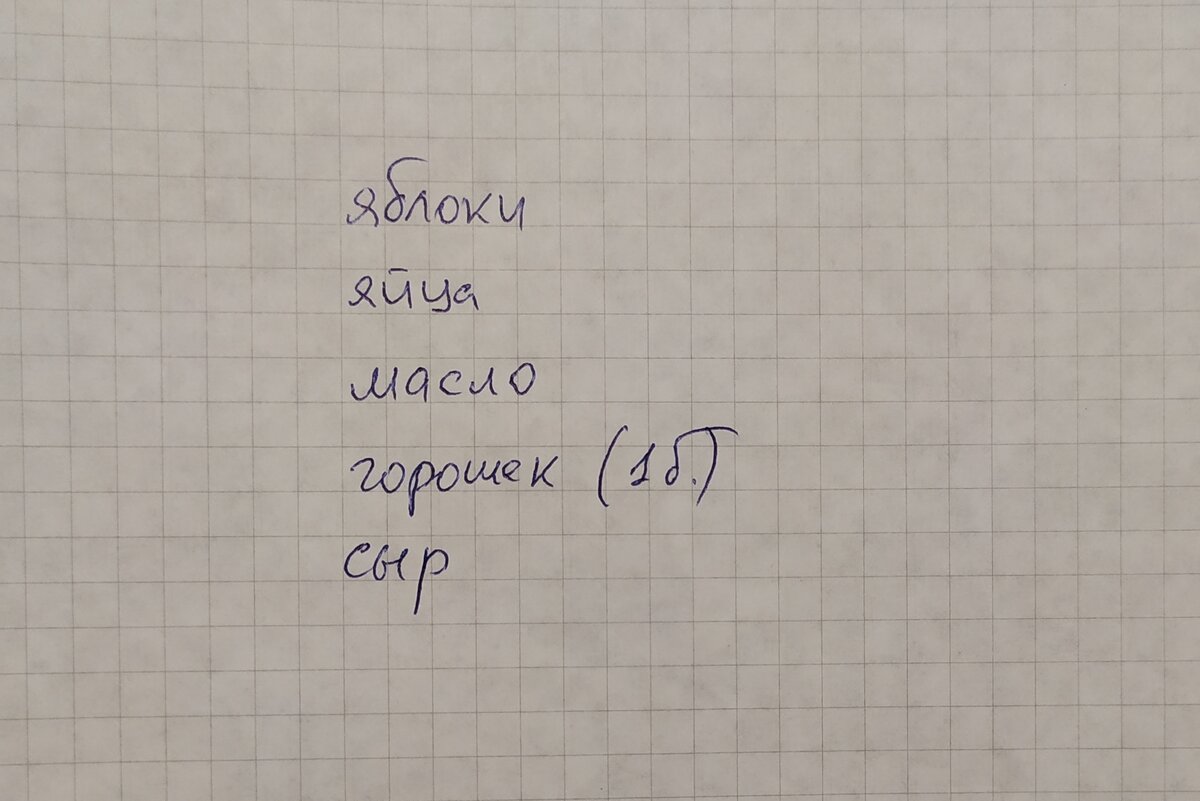 яблоки
яйца
масло
горошек (1б.)
сыр